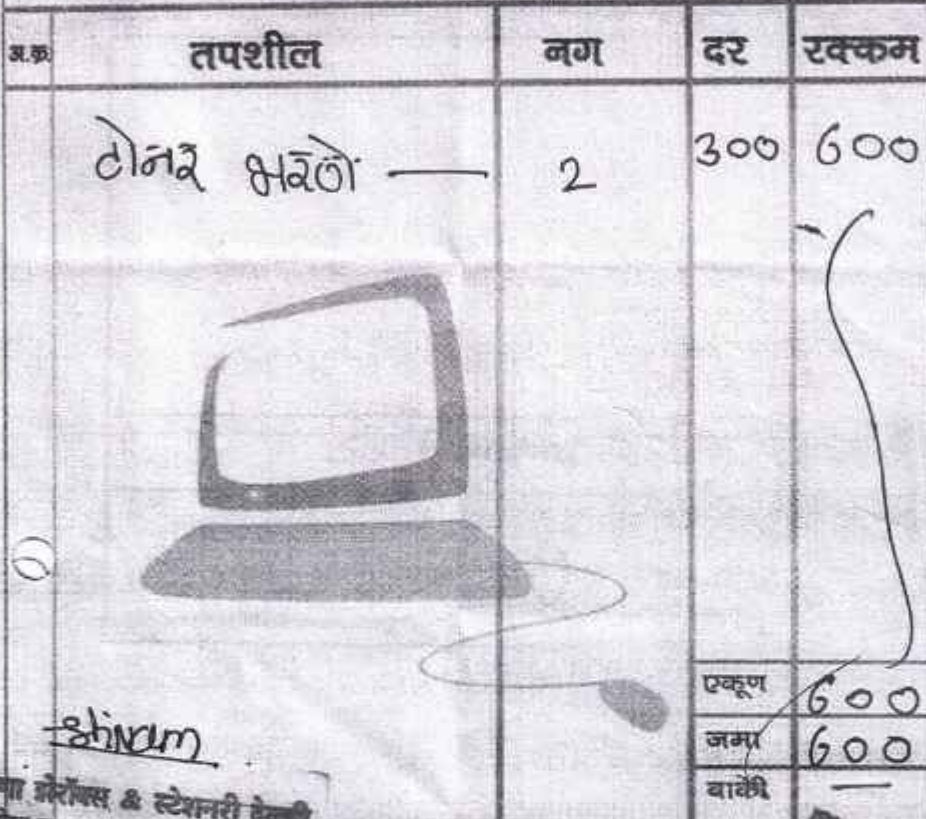 अ.क्र. तपशील नग दर रक्कम
टोनर भरणे — 2 300 600
एकूण 600
जमा 600
बाकी —
Shivam
झेरॉक्स & स्टेशनरी